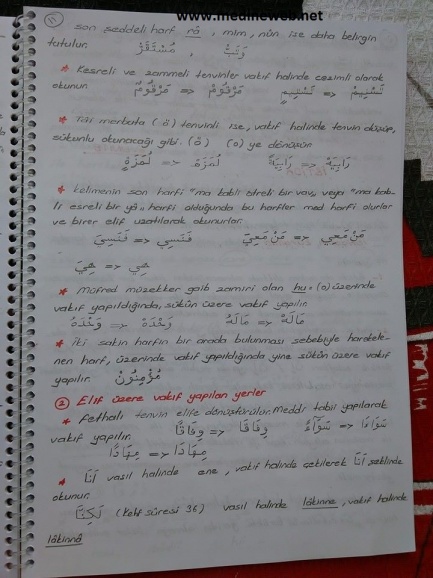 www.medineweb.net
11
son şeddeli harf râ, mim, nûn ise daha belirgin
tutulur. مُسْتَقَرّْ , وَتَبّْ
* Kesreli ve zammeli tenvinler vakıf halinde cezimli olarak
okunur. مَرْقُومٌ => مَرْقُومْ تَسْنِيمٍ => تَسْنِيمْ
* Tâi marbuta (ة) tenvinli ise, vakıf halinde tenvin düşüp,
sükûnlu okunacağı gibi. (ة) (ه) ye dönüşür.
لُمَزَةٍ => لُمَزَهْ رَابِيَةً => رَابِيَهْ
* Kelimenin son harfi "ma babli ötreli bir vav, veya "ma bab-
li esreli bir yâ" harfi olduğunda bu harfler med harfi olurlar
ve birer elif uzatılarak okunurlar.
فَنَسِيَ => فَنَسِي مَنْ مَعِيَ => مَنْ مَعِي
هِيَ => هِي
* Müfred müzekker gaib zamiri olan hu = (ه) üzerinde
vakıf yapıldığında, sükûn üzere vakıf yapılır.
وَحْدَهُ => وَحْدَهْ مَالَهُ => مَالَهْ
* İki sakin harfin bir arada bulunması sebebiyle hareke-
nen harf, üzerinde vakıf yapıldığında yine sükûn üzere vakıf
yapılır.
2 Elif üzere vakıf yapılan yerler
* Fethalı tenvin elife dönüştürülür. Meddi tabii yapılarak
vakıf yapılır. وِفَاقًا => وِفَاقَا سَوَآءً => سَوَآءَا
مِهَادًا => مِهَادَا
* أَنَا vasıl halinde ene, vakıf halinde çekilerek أَنَا şeklinde
okunur.
لَكِنَّا (Kehf sûresi 36) vasıl halinde lâkinne, vakıf halinde
lâkinnâ